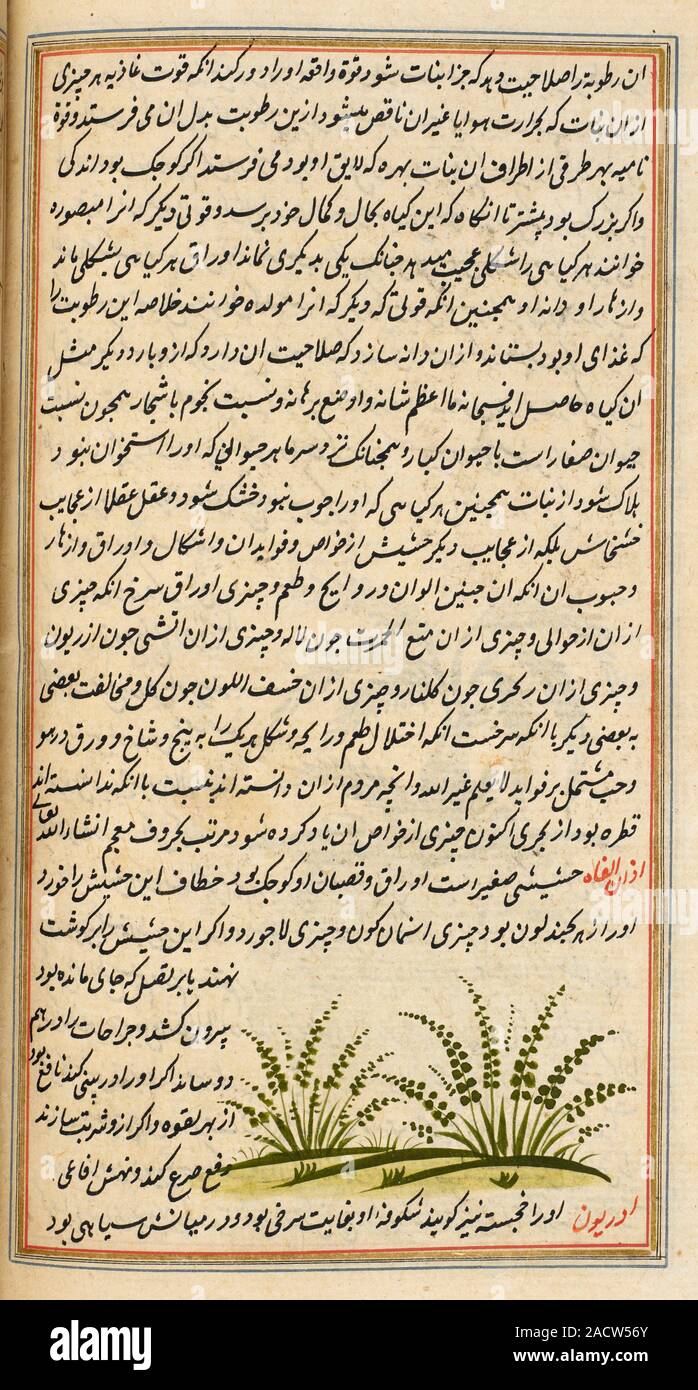 ان رطوبة را صلاحیت دهد که جزا بنات شود قوة واقعه اورا دور کند انکه قوت غاذیه هر چیزی
از ان بنات که بحرارت هوا یا غیر ان ناقص میشود ازین رطوبت بدل ان می فرستد و قوة
نامیه بهر طرفی از اطراف ان بنات بهره که لایق او بود می فرستد اکر کوجک بود اندکی
واکر بزرک بود بیشتر تا انکاه که این کیاه بجال و کمال خود برسد و قوتی دیکر که انرا مصوره
خوانند هر کیاهی را شکلی عجیب میدهد چنانک یکی بدیکری نماند اوراق هر کیاهی بشکلی ماند
وازهار او دانه او همچنین انکه قوتی که دیکر که انرا مولده خوانند خلاصه این رطوبت را
که غذای او بود بستاند و از ان دانه سازد که صلاحیت ان دارد که ازو بار دیکر مثل
ان کیاه حاصل اید فسبحانه ما اعظم شانه و اوضع برهانه و نسبت نجوم باشجار همجون نسبت
حیوان صغار است با حیوان کبار و همجنانک نزد سرما هر حیوانی که اورا استخوان نبود
هلاک شود از بنات همچنین هر کیاهی که اورا جوب نبود خشک شود و عقل عقلا از عجایب
خشخاش بلکه از عجایب دیکر حشیش از خواص و فواید ان و اشکال و اوراق و ازهار
و حبوب ان انکه ان جنین الوان و روایح و طعم و چیزی اوراق سرخ انکه چیزی
از ان ارجوانی و چیزی از ان الحمرت جون لاله و چیزی از ان اتشی جون اذریون
و چیزی از ان جون کلنار و چیزی از ان اللون جون کل و مخالفت بعضی
به بعضی دیکر با انکه سرخست انکه اختلال طعم و رایحه و شکل هریک را به بیخ و شاخ و ورق
وحب مشتمل بر فواید لا یعلم غیر الله وانچه مردم از ان دانسته اند بنسبت با انکه ندانسته اند
قطره بود از بحری اکنون چیزی از خواص ان یاد کرده شود مرتب بحروف معجم انشاء الله تعالی
اذان الفاه حشیشی صغیر است اوراق و قضبان او کوجک بود خطاف این حشیش را خورد
اورا زهر چند لون بود چیزی اسمان کون و چیزی لاجورد واکر این حشیش را بر کوشت
نهند یا بر نصل که جای مانده بود
بیرون کشد و جراحات را درهم
دوساند اکر اورا در بینی کند نافع بود
از بهر لقوه واکر ازو شربت سازند
دفع صرع کند و نهش افاعی
ادریون اورا خجسته نیز کویند شکوفه او بغایت سرخی بود و در میانش سیاهی بود
alamy
Image ID: 2ACW56Y
www.alamy.com